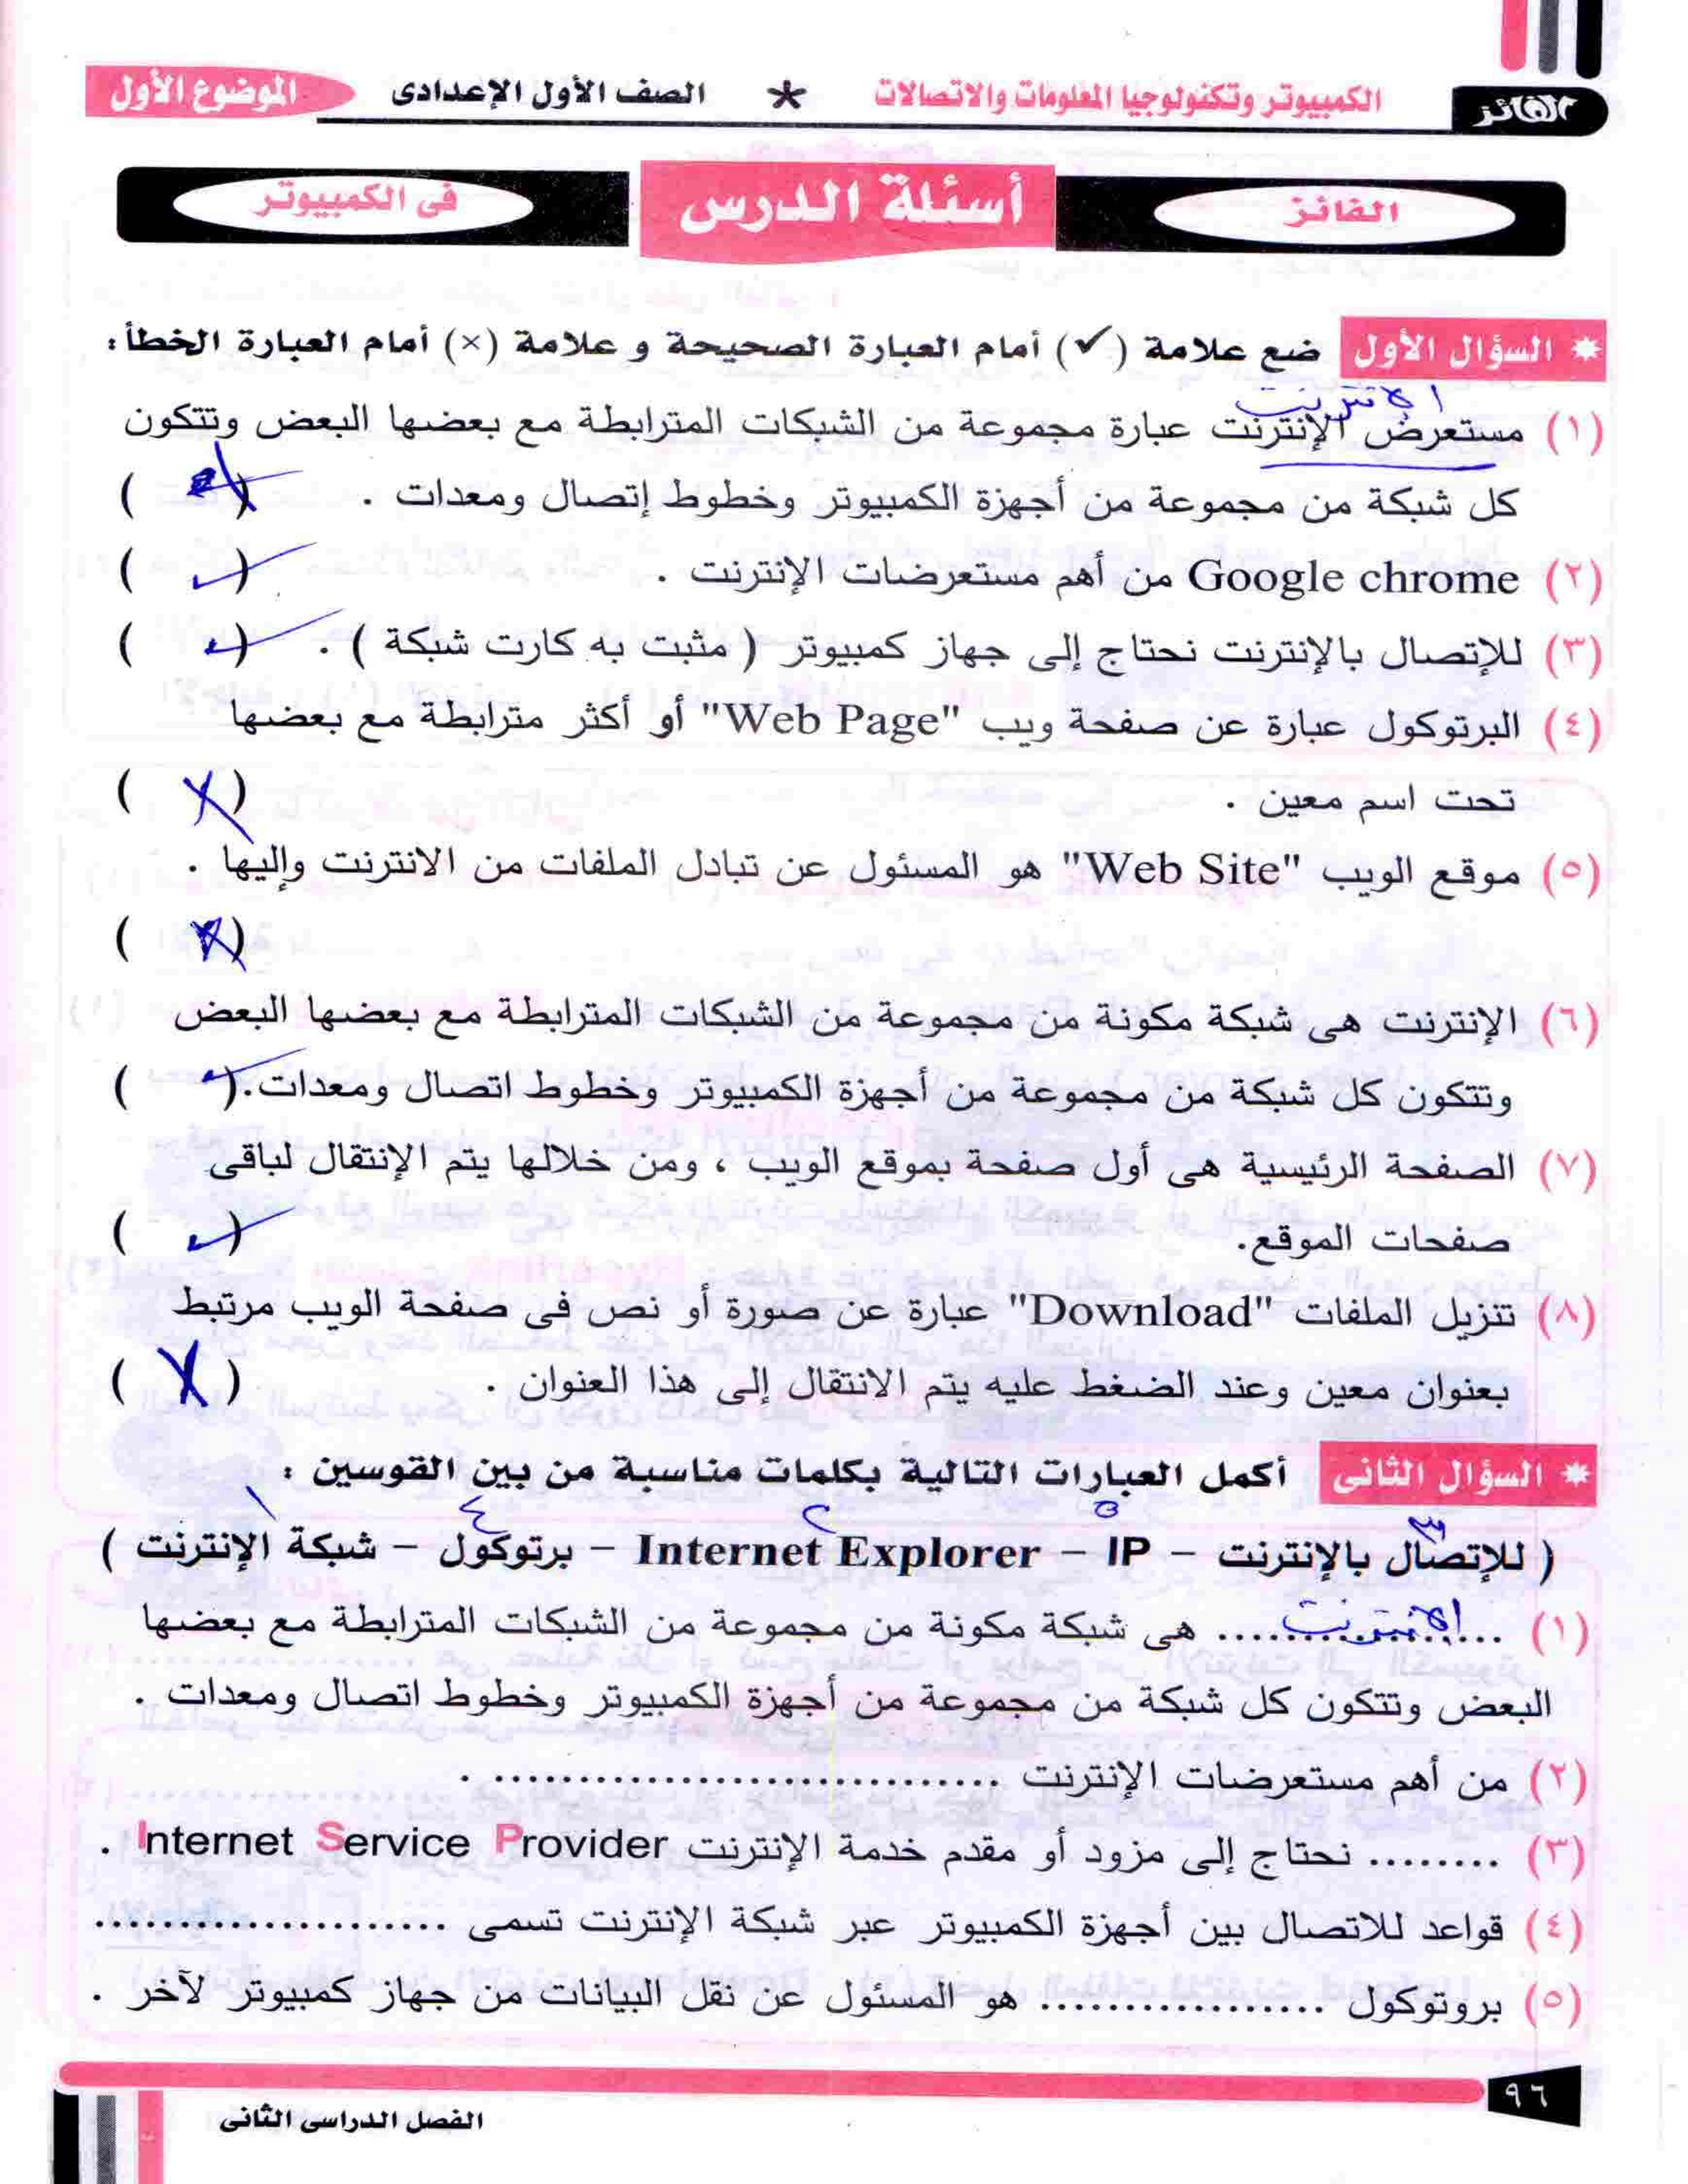 الفائز
الكمبيوتر وتكنولوجيا المعلومات والاتصالات * الصف الأول الإعدادى الموضوع الأول
الفائز أسئلة الدرس فى الكمبيوتر
* السؤال الأول ضع علامة (✓) أمام العبارة الصحيحة و علامة (×) أمام العبارة الخطأ :
الانترنت
(١) مستعرض الإنترنت عبارة مجموعة من الشبكات المترابطة مع بعضها البعض وتتكون
كل شبكة من مجموعة من أجهزة الكمبيوتر وخطوط إتصال ومعدات . ( )
(٢) Google chrome من أهم مستعرضات الإنترنت . (✓)
(٣) للإتصال بالإنترنت نحتاج إلى جهاز كمبيوتر ( مثبت به كارت شبكة ) . (✓)
(٤) البرتوكول عبارة عن صفحة ويب "Web Page" أو أكثر مترابطة مع بعضها
تحت اسم معين . (×)
(٥) موقع الويب "Web Site" هو المسئول عن تبادل الملفات من الانترنت وإليها .
(×)
(٦) الإنترنت هى شبكة مكونة من مجموعة من الشبكات المترابطة مع بعضها البعض
وتتكون كل شبكة من مجموعة من أجهزة الكمبيوتر وخطوط اتصال ومعدات. (✓)
(٧) الصفحة الرئيسية هى أول صفحة بموقع الويب ، ومن خلالها يتم الإنتقال لباقى
صفحات الموقع. (✓)
(٨) تنزيل الملفات "Download" عبارة عن صورة أو نص فى صفحة الويب مرتبط
بعنوان معين وعند الضغط عليه يتم الانتقال إلى هذا العنوان . (×)
* السؤال الثانى أكمل العبارات التالية بكلمات مناسبة من بين القوسين :
٣ ٥ ٢ ٤ ١
( للإتصال بالإنترنت – IP – Internet Explorer – برتوكول – شبكة الإنترنت )
(١) ...الانترنت... هى شبكة مكونة من مجموعة من الشبكات المترابطة مع بعضها
البعض وتتكون كل شبكة من مجموعة من أجهزة الكمبيوتر وخطوط اتصال ومعدات .
(٢) من أهم مستعرضات الإنترنت ............................... .
(٣) ........ نحتاج إلى مزود أو مقدم خدمة الإنترنت Internet Service Provider .
(٤) قواعد للاتصال بين أجهزة الكمبيوتر عبر شبكة الإنترنت تسمى .....................
(٥) بروتوكول ................. هو المسئول عن نقل البيانات من جهاز كمبيوتر لآخر .
٩٦
الفصل الدراسى الثانى